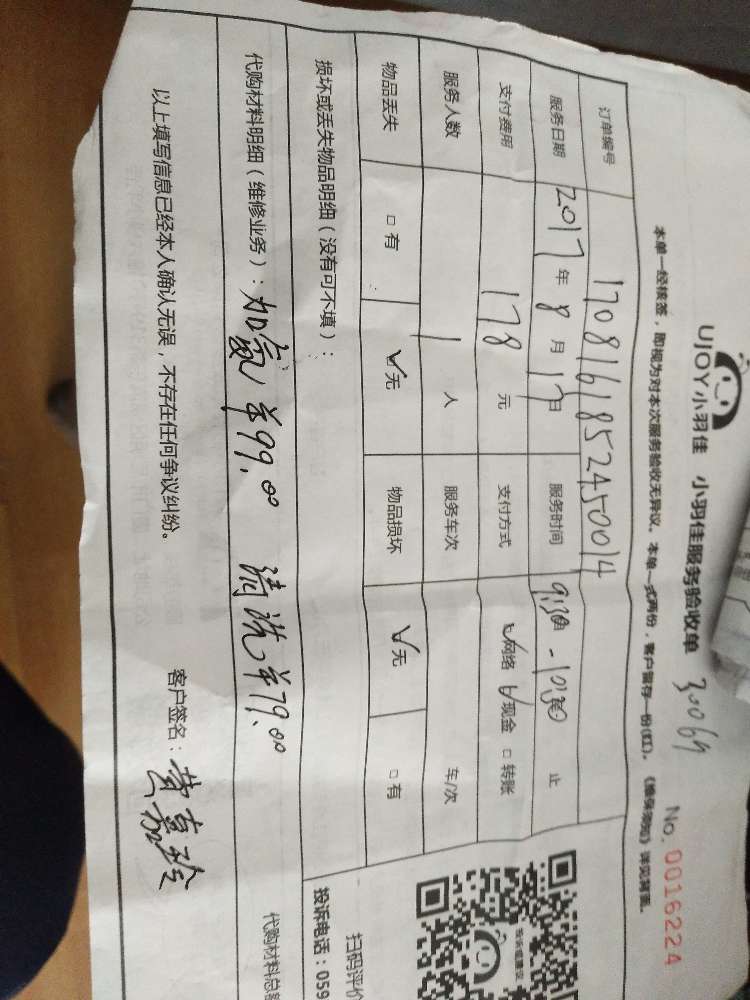 UJOY小羽佳 小羽佳服务验收单 30069
No. 0016224
本单一经核签，即视为对本次服务验收无异议。本单一式两份，客户留存一份(红)。《维保须知》详见背面。
订单编号 1708161852450014
服务日期 2017年8月17日 服务时间 9:30-10:30 止
支付费用 178 元 支付方式 ☑网络 ☑现金 □转账
服务人数 1 人 服务车次 车/次
物品丢失 □有 ☑无 物品损坏 ☑无 □有
损坏或丢失物品明细（没有可不填）：
代购材料明细（维修业务）：加氟¥99.00 清洗¥79.00
代购材料总
以上填写信息已经本人确认无误，不存在任何争议纠纷。
客户签名：
扫码评价
投诉电话：059